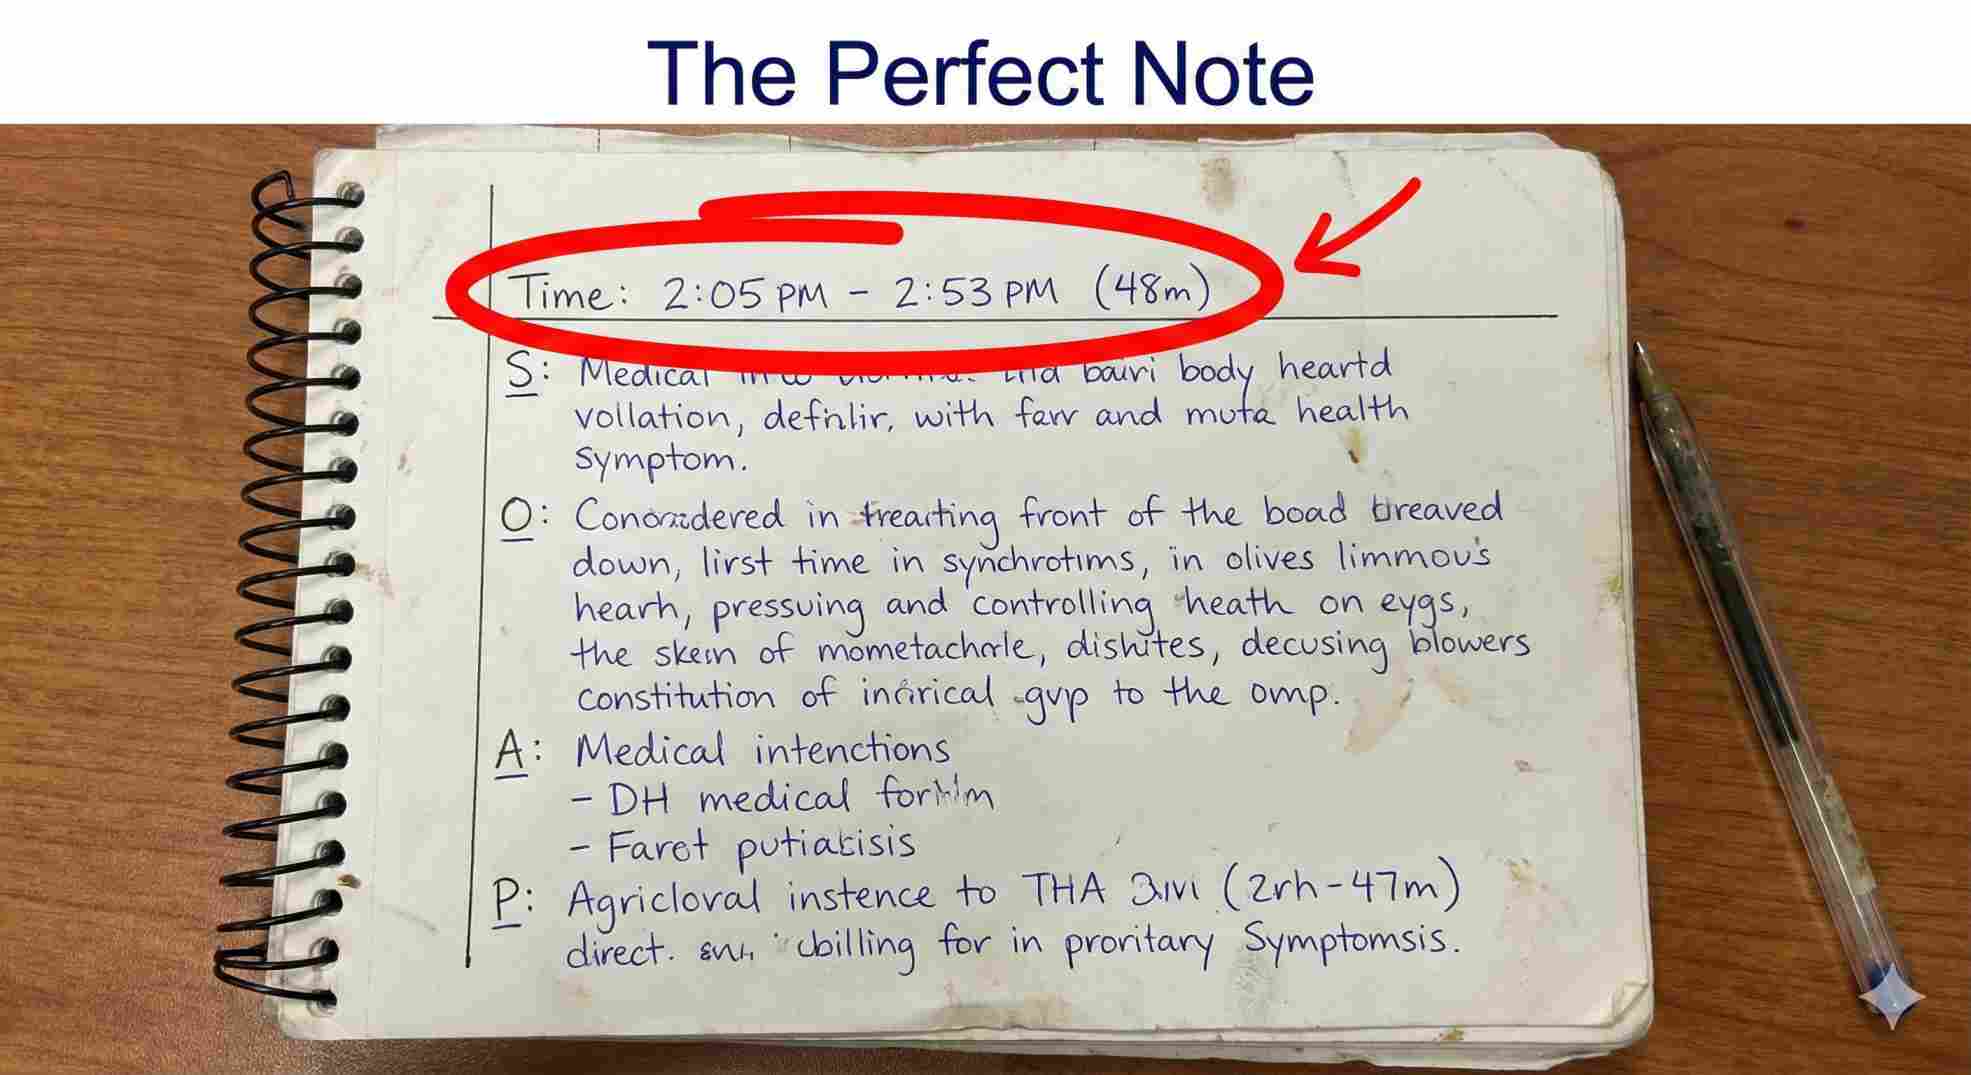 The Perfect Note
Time: 2:05 PM - 2:53 PM (48m)
S: Medical bairi body heartd
vollation, defnlir, with farr and muta health
symptom.
O: in treacting front of the boad breaved
down, lirst time in synchrotims, in olives limmou's
hearh, pressuing and controlling heath on eygs,
the skein of mometachorle, dishites, decusing blowers
constitution of gvp to the omp.
A: Medical intenctions
- DH medical
- Farot putiatisis
P: Agricloval instence to THA (2rh-47m)
direct. cbilling for in proritary Symptomsis.